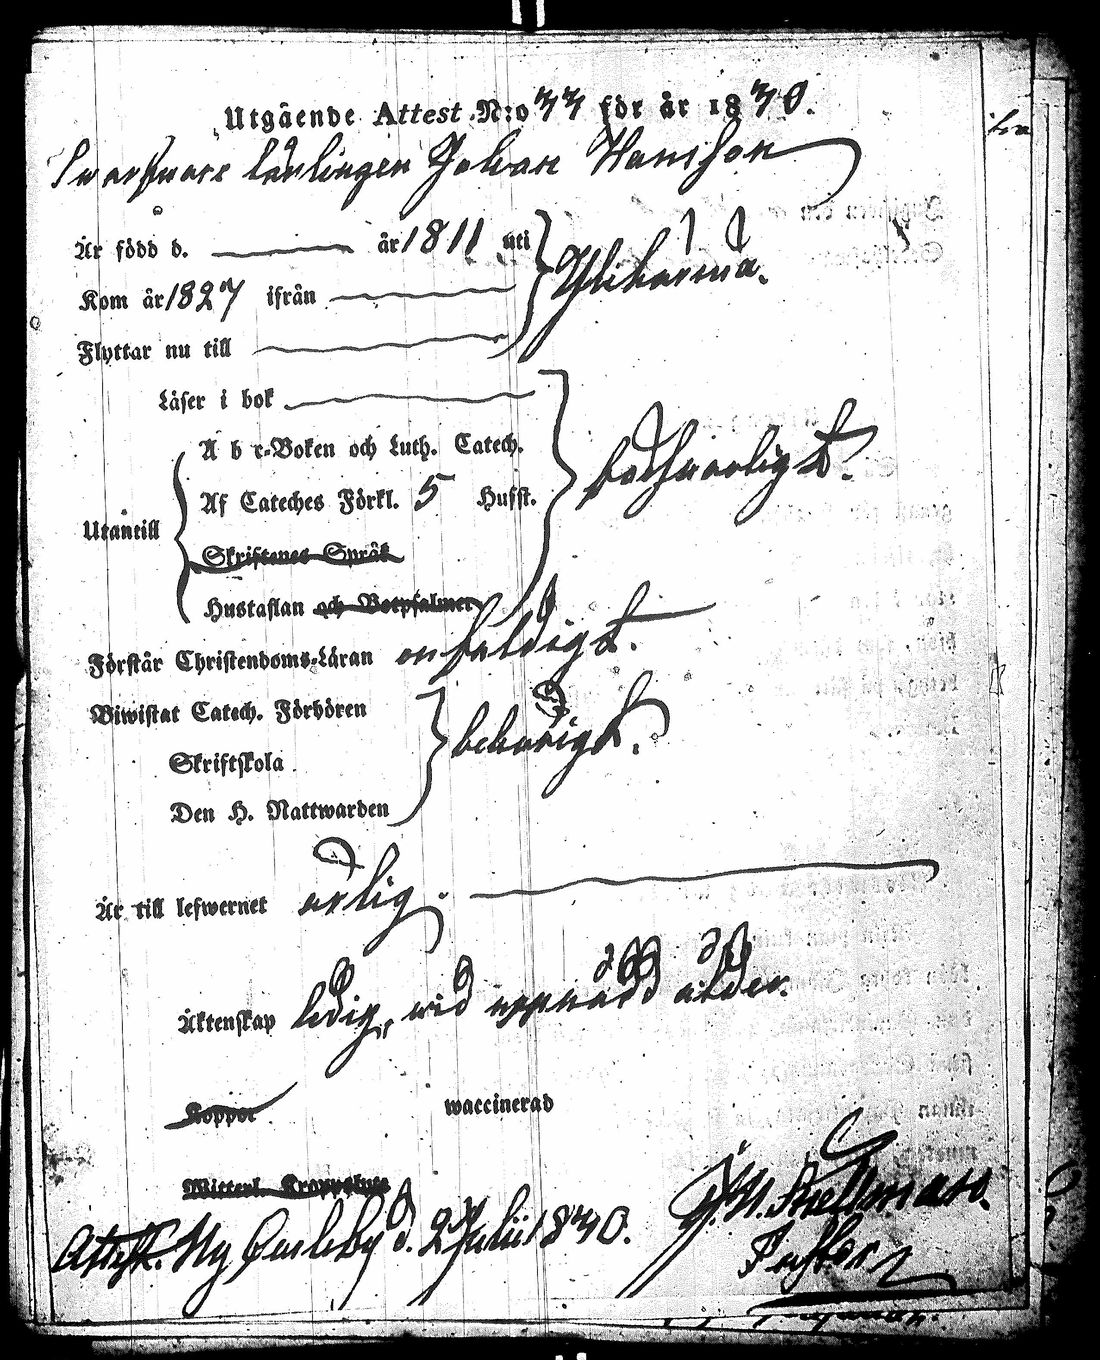 Utgående Attest N:o 33 för år 1830.
Swarfware lärlingen Johan Hansson
Är född d. år 1811 uti
Kom år 1827 ifrån
Ylihärmä.
Flyttar nu till
Läser i bok
A b c-Boken och Luth. Catech.
Af Cateches Förkl. 5 Hufst.
försvarligt.
Utantill
Skriftenes Språk
Hustaflan och Botpsalmer
Förstår Christendoms-Läran enfaldigt.
Biwistat Catech. Förhören
Skriftskola
behörigt.
Den H. Nattwarden
Är till lefwernet ärlig.
Äktenskap ledig, wid uppnådd ålder.
Koppor waccinerad
Witterl. Kroppslyte
Attest. Ny Carleby d. 2 Julii 1830.
Pastor